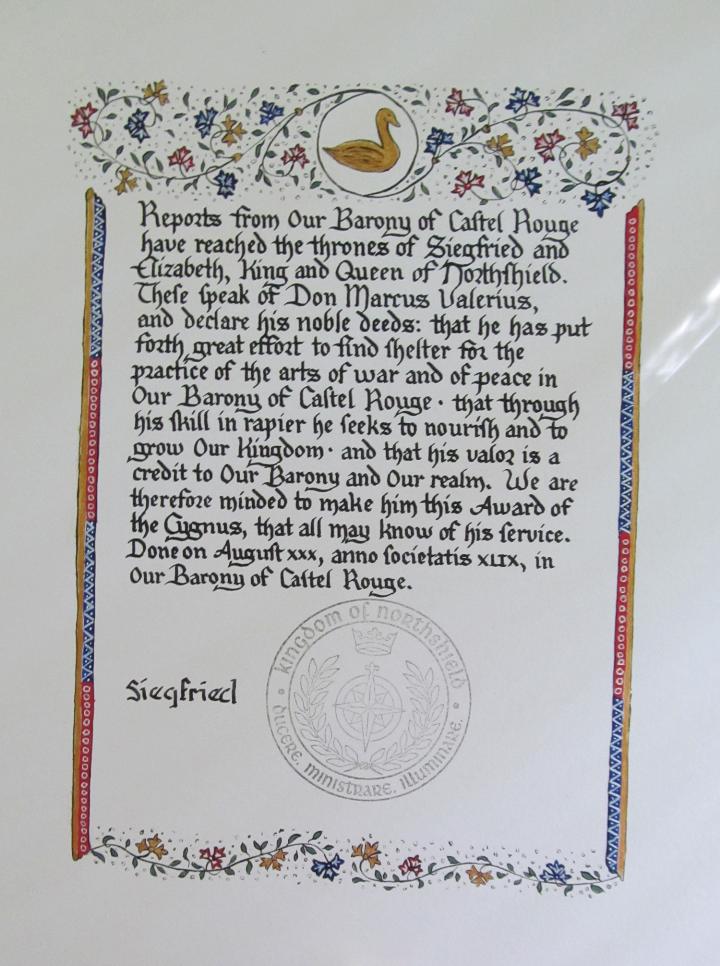 Reports from Our Barony of Caſtel Rouge
have reached the thrones of Siegfried and
Elizabeth, King and Queen of Northſhield.
Theſe ſpeak of Don Marcus Valerius,
and declare his noble deeds: that he has put
forth great effort to find ſhelter for the
practice of the arts of war and of peace in
Our Barony of Caſtel Rouge · that through
his ſkill in rapier he ſeeks to nouriſh and to
grow Our Kingdom · and that his valor is a
credit to Our Barony and Our realm. We are
therefore minded to make him this Award of
the Cygnus, that all may know of his ſervice.
Done on Auguſt xxx, anno ſocietatis XLIX, in
Our Barony of Caſtel Rouge.
Siegfried
kingdom of northshield
ducere. ministrare. illuminare.